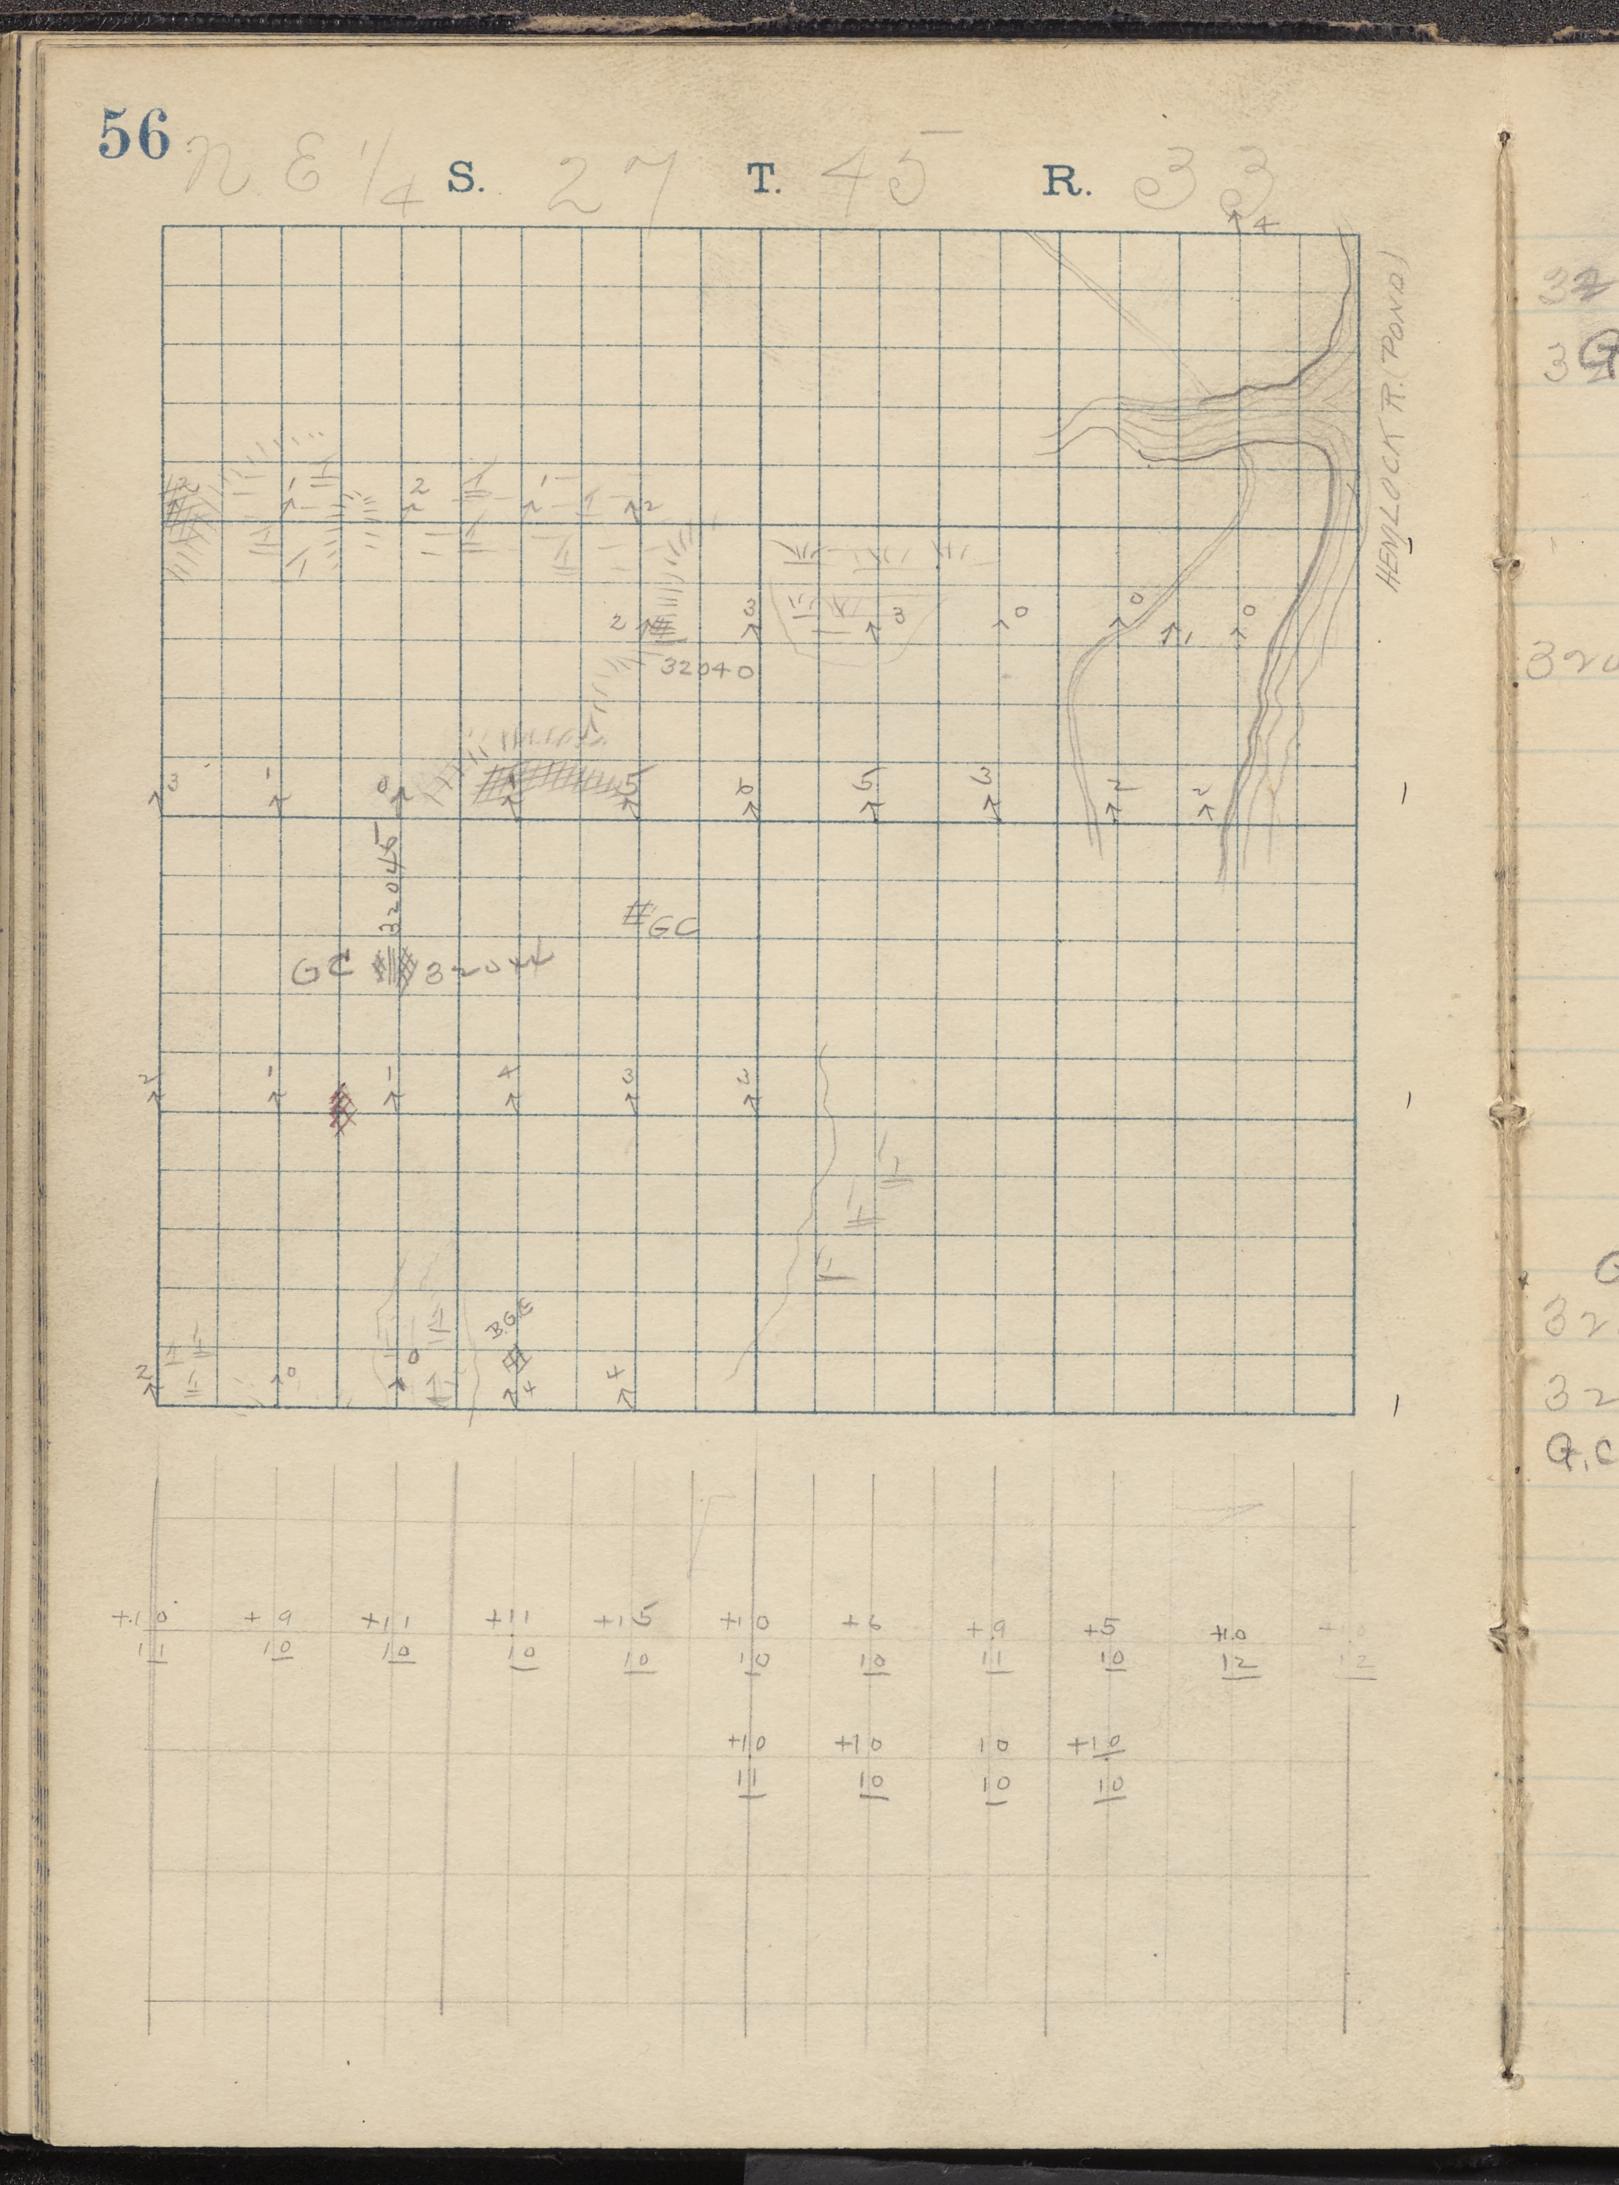 56 N. E 1/4 S. 27 T. 45 R. 33
↑ 4
HEMLOCK R. (POND)
2 1 2 1 2
2 3 3 0 0 1 0
32040
3 1 0 1 5 6 5 3 2 2
32045
GC
GC 32044
2 1 1 4 3 3
B.G.G
2 0 0 4 4
+10 +9 +11 +11 +15 +10 +6 +9 +5 +10
11 10 10 10 10 10 10 11 10 12 12
+10 +10 10 +10
11 10 10 10
32
3
320
G
32
32
G.C